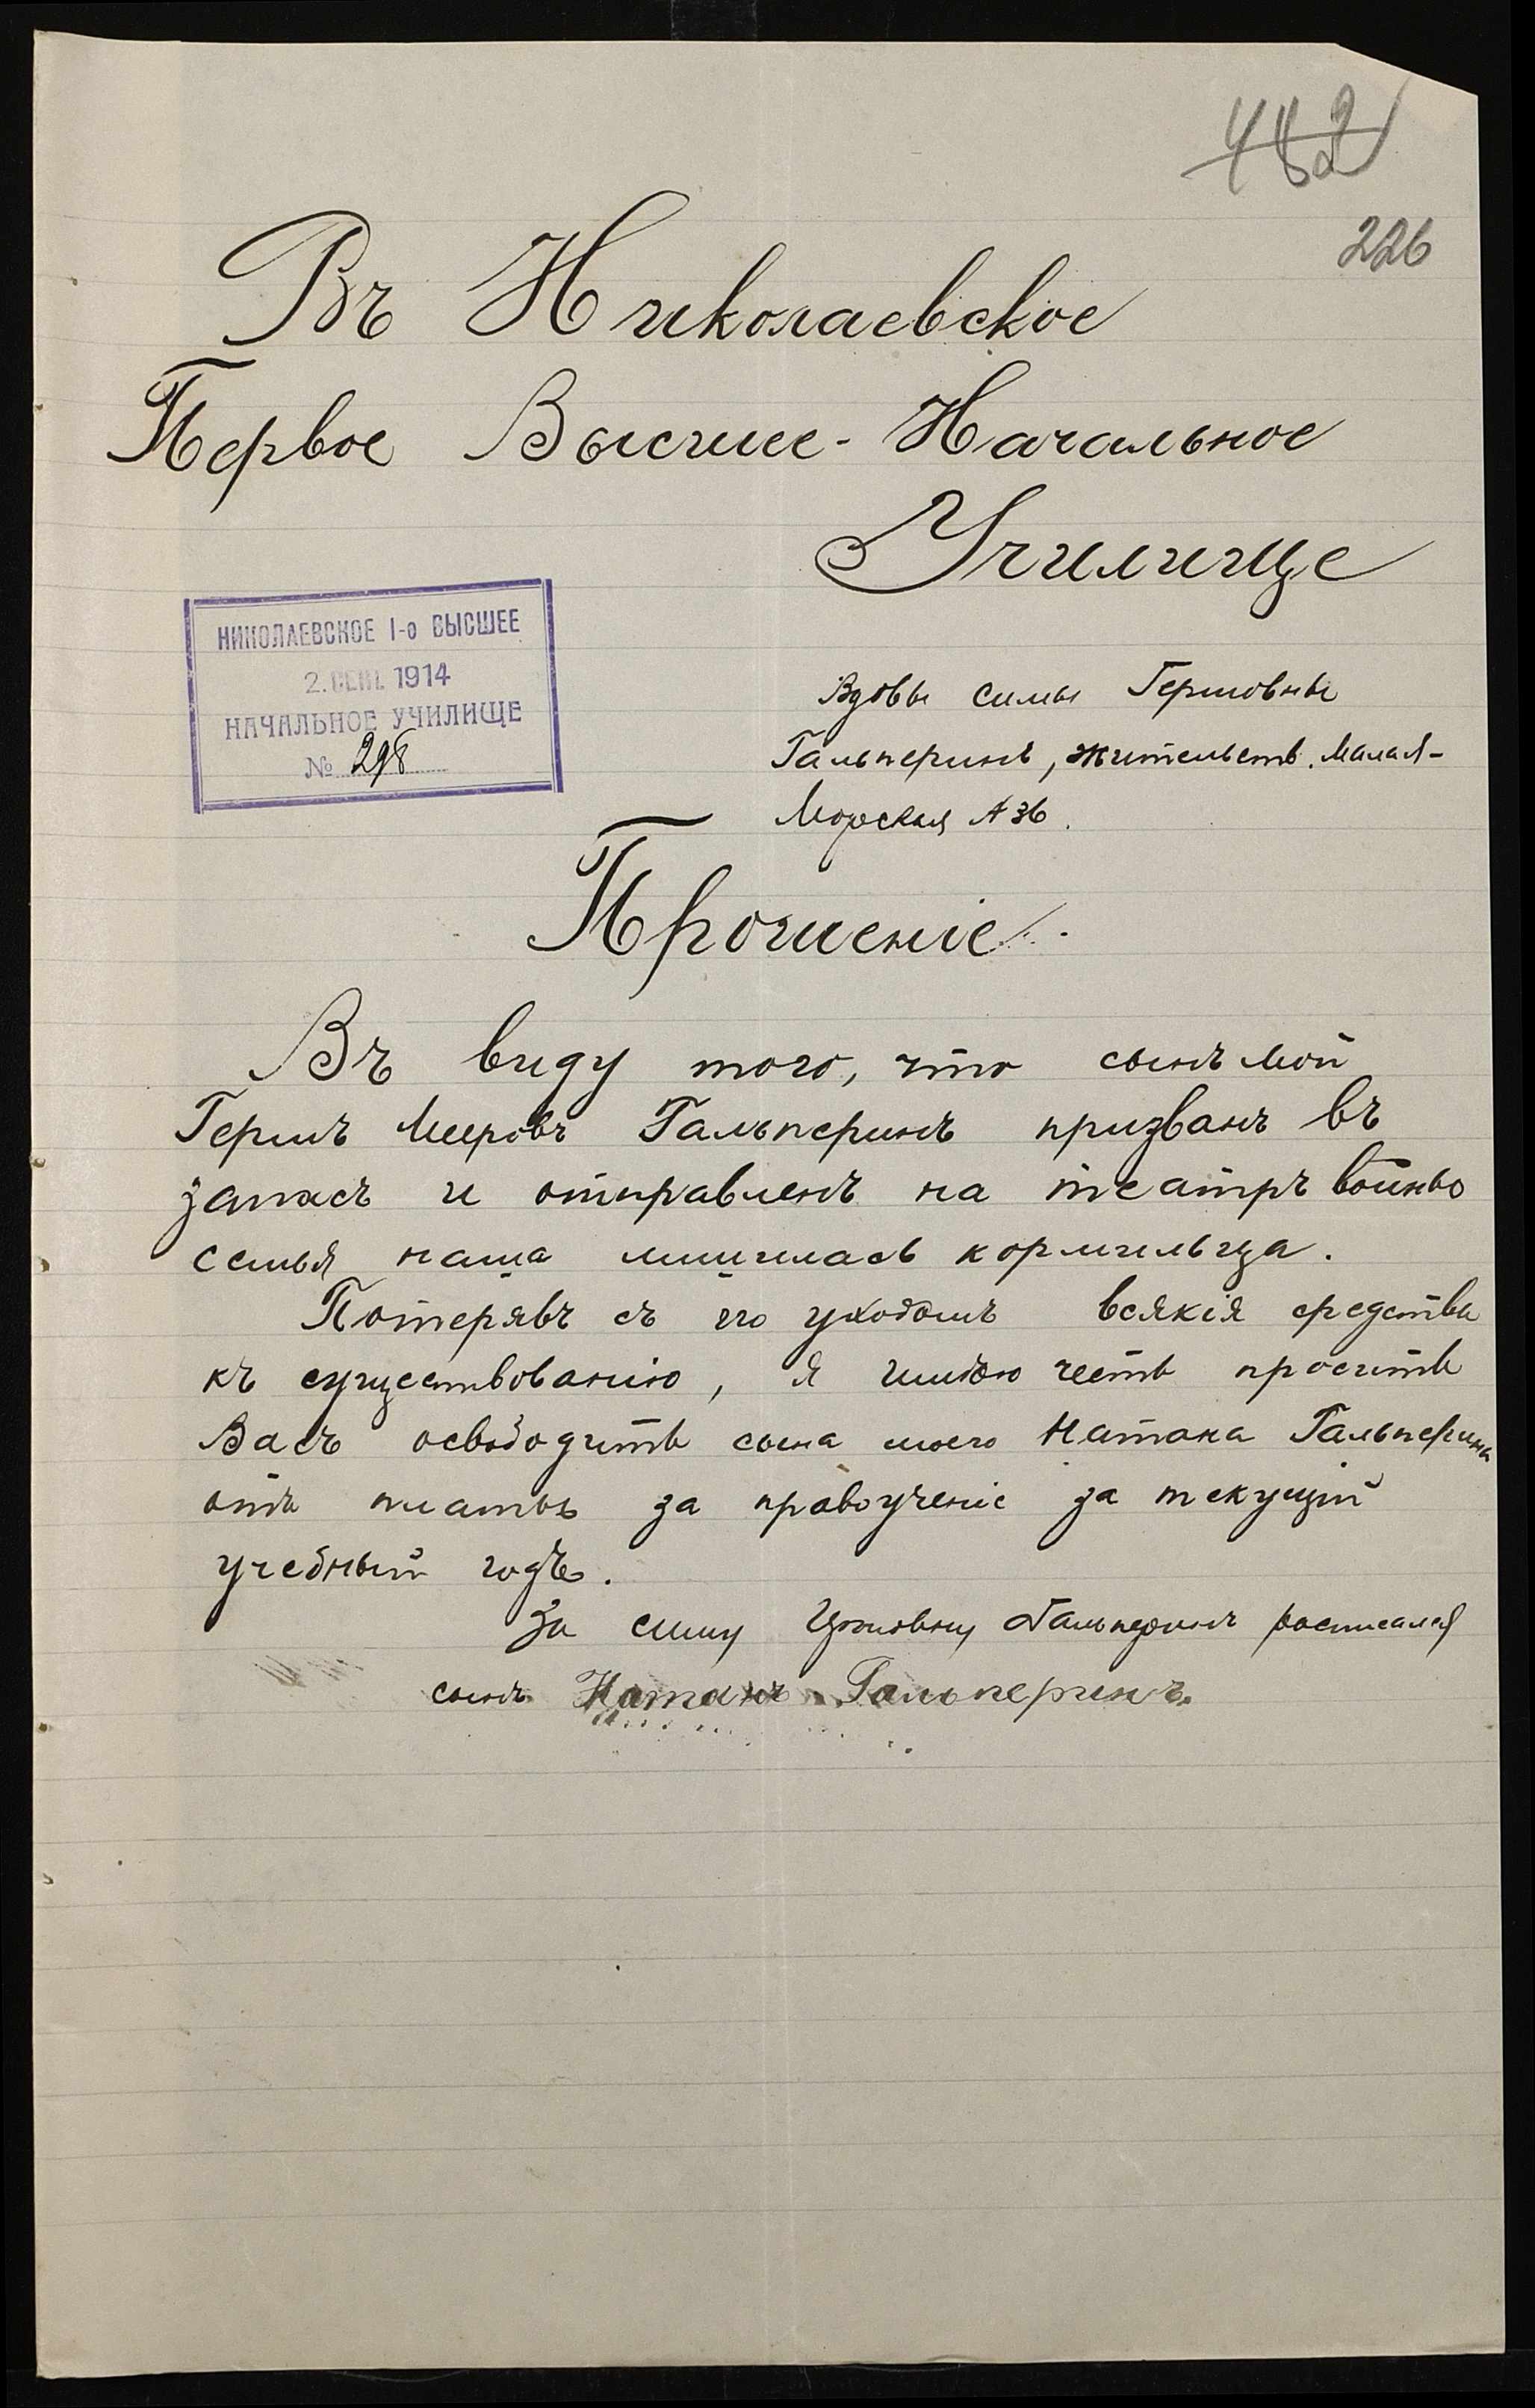 482
226
Въ Николаевское
Первое Высшее-Начальное
Училище
НИКОЛАЕВСКОЕ 1-о ВЫСШЕЕ
2. СЕН. 1914
НАЧАЛЬНОЕ УЧИЛИЩЕ
№ 298
Вдовы Симы Гершовны
Гальперинъ, жительств. Малая-
Морская № 36.
Прошеніе.
Въ виду того, что сынъ мой
Гершъ Мееровъ Гальперинъ призванъ въ
запасъ и отправленъ на театръ войны
семья наша лишилась кормильца.
Потерявъ съ его уходомъ всякія средства
къ существованію, я имѣю честь просить
Васъ освободить сына моего Натана Гальперина
отъ платы за правоученіе за текущій
учебный годъ.
За Симу Гершовну Гальперинъ росписался
сынъ Натанъ Гальперинъ.